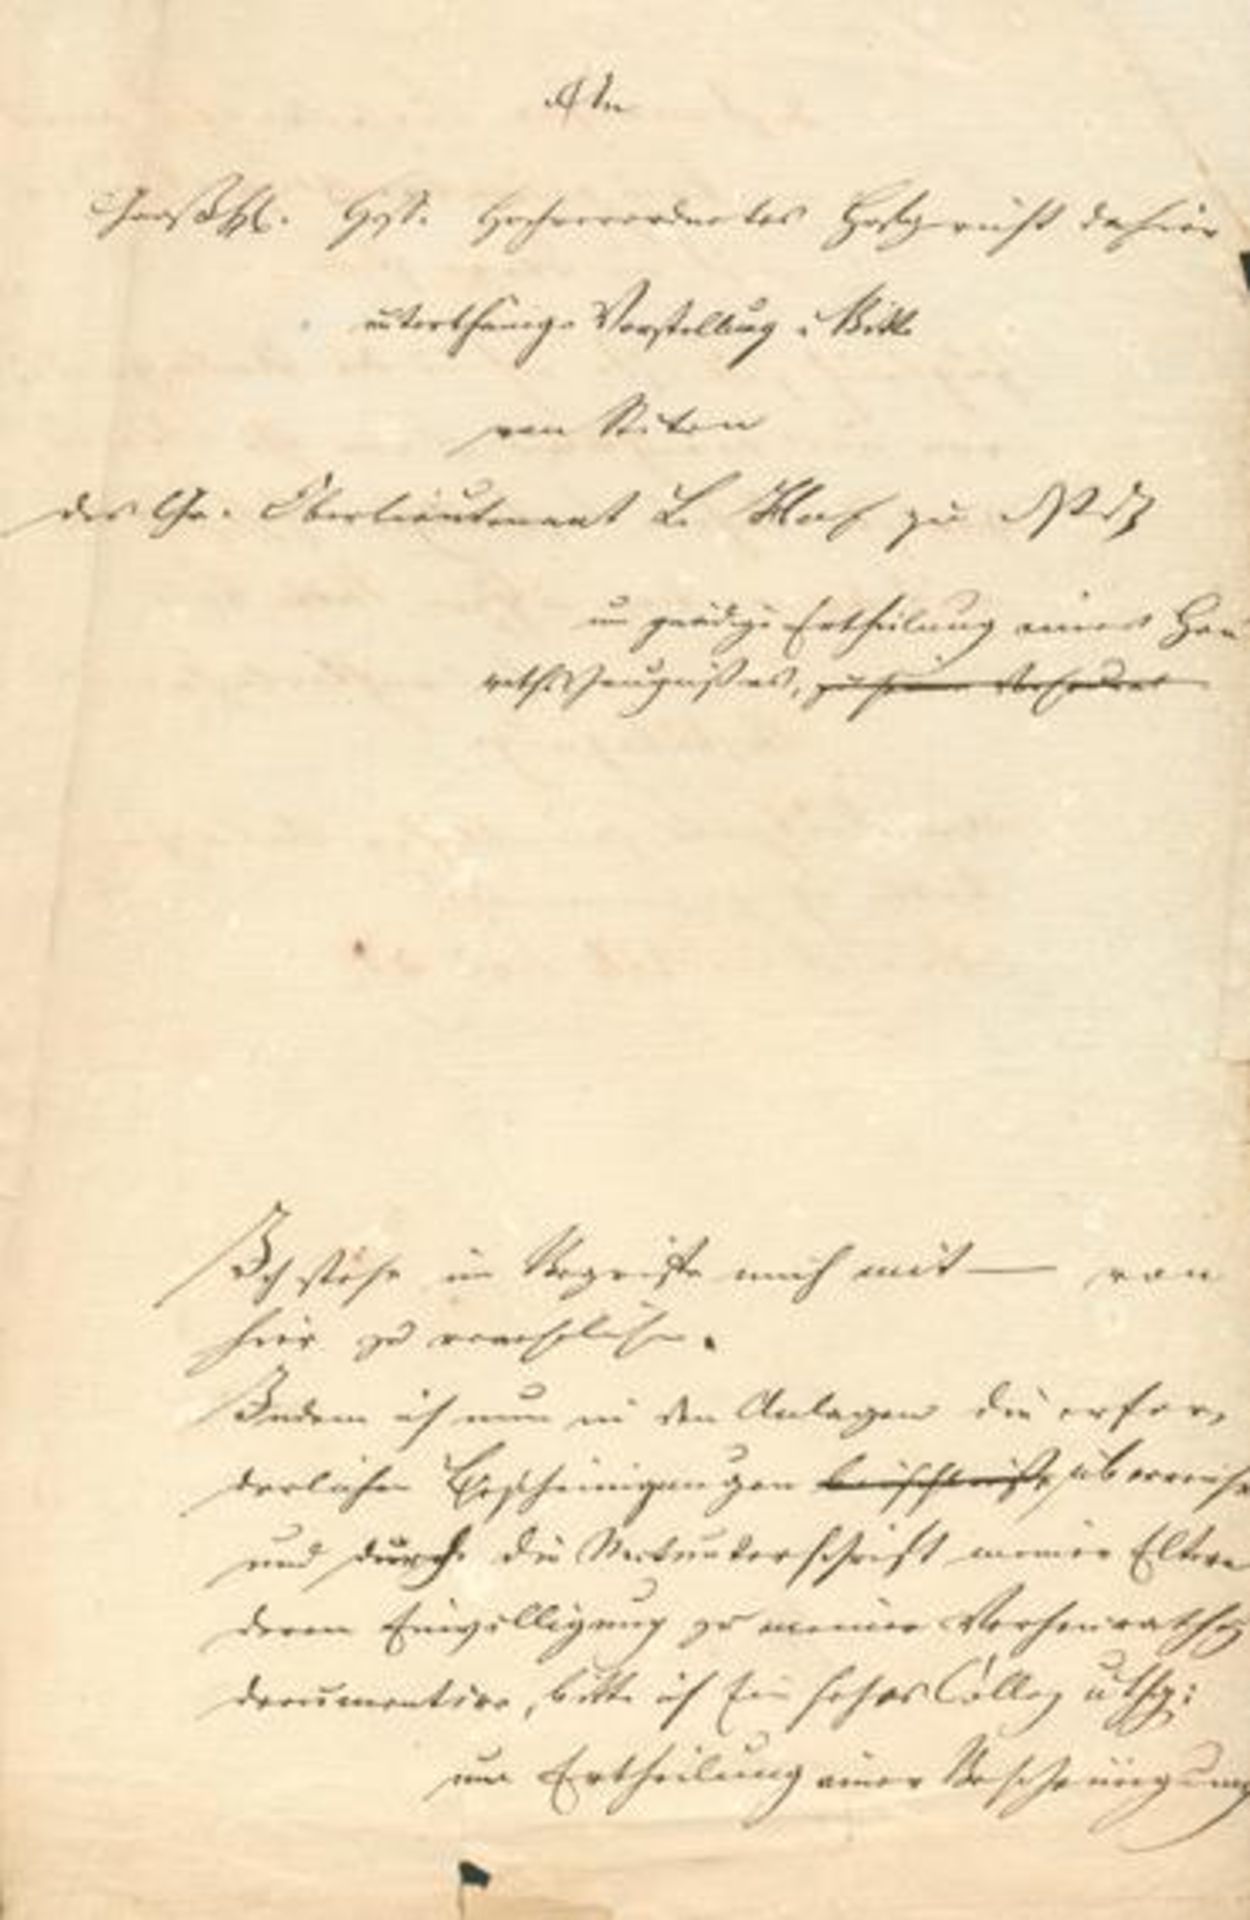 An
Großhzl. Hess. Hochverordnetes Hofgericht dahier
unterthänige Vorstellung u Bitte
von Seiten
des Gr. Oberlieutenant L. zu
um gnädige Ertheilung eines Hei
rathszeugnisses,
Ich stehe im Begriffe mich mit — von
hier zu verehelichen.
Indem ich nun in den Anlagen die erfor-
derlichen Bescheinigungen überreiche
und durch die Mitunterschrift meiner Eltern
deren Einwilligung zu meiner Verheirathg
documentire, bitte ich Ein hohes Colleg uthg:
um Ertheilung einer Bescheinigung